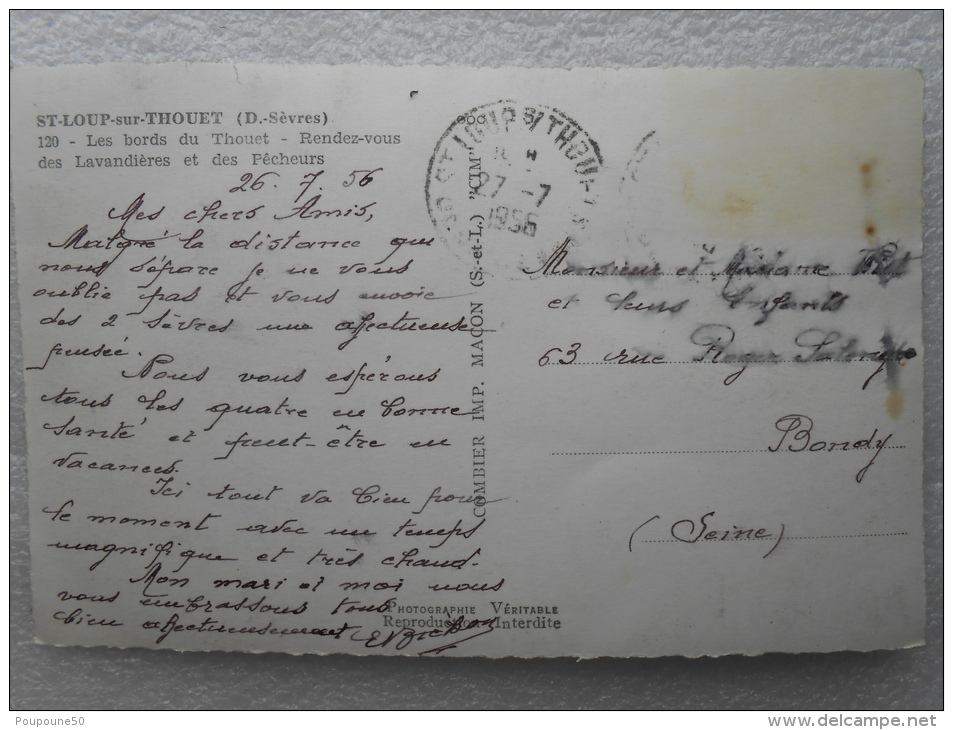 ST-LOUP-sur-THOUET (D.-Sèvres)
120 - Les bords du Thouet - Rendez-vous
des Lavandières et des Pêcheurs
26.7.56
Mes chers Amis,
Malgré la distance qui
nous sépare je ne vous
oublie pas et vous envoie
des 2 Sèvres une affectueuse
pensée.
Nous vous espérons
tous les quatre en bonne
santé et peut-être en
vacances.
Ici tout va bien pour
le moment avec un temps
magnifique et très chaud.
Mon mari et moi nous
vous embrassons tous
bien affectueusement
COMBIER IMP. MACON (S.-et-L.) "CIM"
ST LOUP S/ THOUET
27 - 7
1956
Monsieur et Madame
et leurs Enfants
63 rue Roger Salengro
Bondy
(Seine)
PHOTOGRAPHIE VÉRITABLE
Reproduction Interdite
Poupoune50
www.delcampe.net